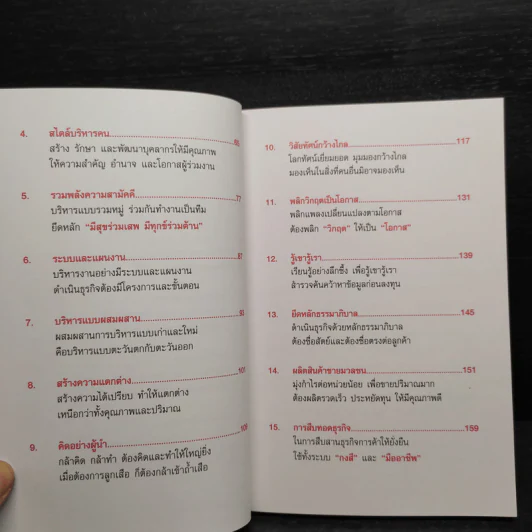 4. สไตล์บริหารคน
สร้าง รักษา และพัฒนาบุคลากรให้มีคุณภาพ
ให้ความสำคัญ อำนาจ และโอกาสผู้ร่วมงาน
5. รวมพลังความสามัคคี 77
บริหารแบบรวมหมู่ ร่วมกันทำงานเป็นทีม
ยึดหลัก "มีสุขร่วมเสพ มีทุกข์ร่วมต้าน"
6. ระบบและแผนงาน 87
บริหารงานอย่างมีระบบและแผนงาน
ดำเนินธุรกิจต้องมีโครงการและขั้นตอน
7. บริหารแบบผสมผสาน 93
ผสมผสานการบริหารแบบเก่าและใหม่
คือบริหารแบบตะวันตกกับตะวันออก
8. สร้างความแตกต่าง 101
สร้างความได้เปรียบ ทำให้แตกต่าง
เหนือกว่าทั้งคุณภาพและปริมาณ
9. คิดอย่างผู้นำ 109
กล้าคิด กล้าทำ ต้องคิดและทำให้ใหญ่ยิ่ง
เมื่อต้องการลูกเสือ ก็ต้องกล้าเข้าถ้ำเสือ
10. วิสัยทัศน์กว้างไกล 117
โลกทัศน์เยี่ยมยอด มุมมองกว้างไกล
มองเห็นในสิ่งที่คนอื่นมิอาจมองเห็น
11. พลิกวิกฤตเป็นโอกาส 131
พลิกแพลงเปลี่ยนแปลงตามโอกาส
ต้องพลิก "วิกฤต" ให้เป็น "โอกาส"
12. รู้เขารู้เรา 139
เรียนรู้อย่างลึกซึ้ง เพื่อรู้เขารู้เรา
สำรวจค้นคว้าหาข้อมูลก่อนลงทุน
13. ยึดหลักธรรมาภิบาล 145
ดำเนินธุรกิจด้วยหลักธรรมาภิบาล
ต้องซื่อสัตย์และต้องซื่อตรงต่อลูกค้า
14. ผลิตสินค้าขายมวลชน 151
มุ่งกำไรต่อหน่วยน้อย เพื่อขายปริมาณมาก
ต้องผลิตรวดเร็ว ประหยัดทุน ให้มีคุณภาพดี
15. การสืบทอดธุรกิจ 159
ในการสืบสานธุรกิจการค้าให้ยั่งยืน
ใช้ทั้งระบบ "กงสี" และ "มืออาชีพ"